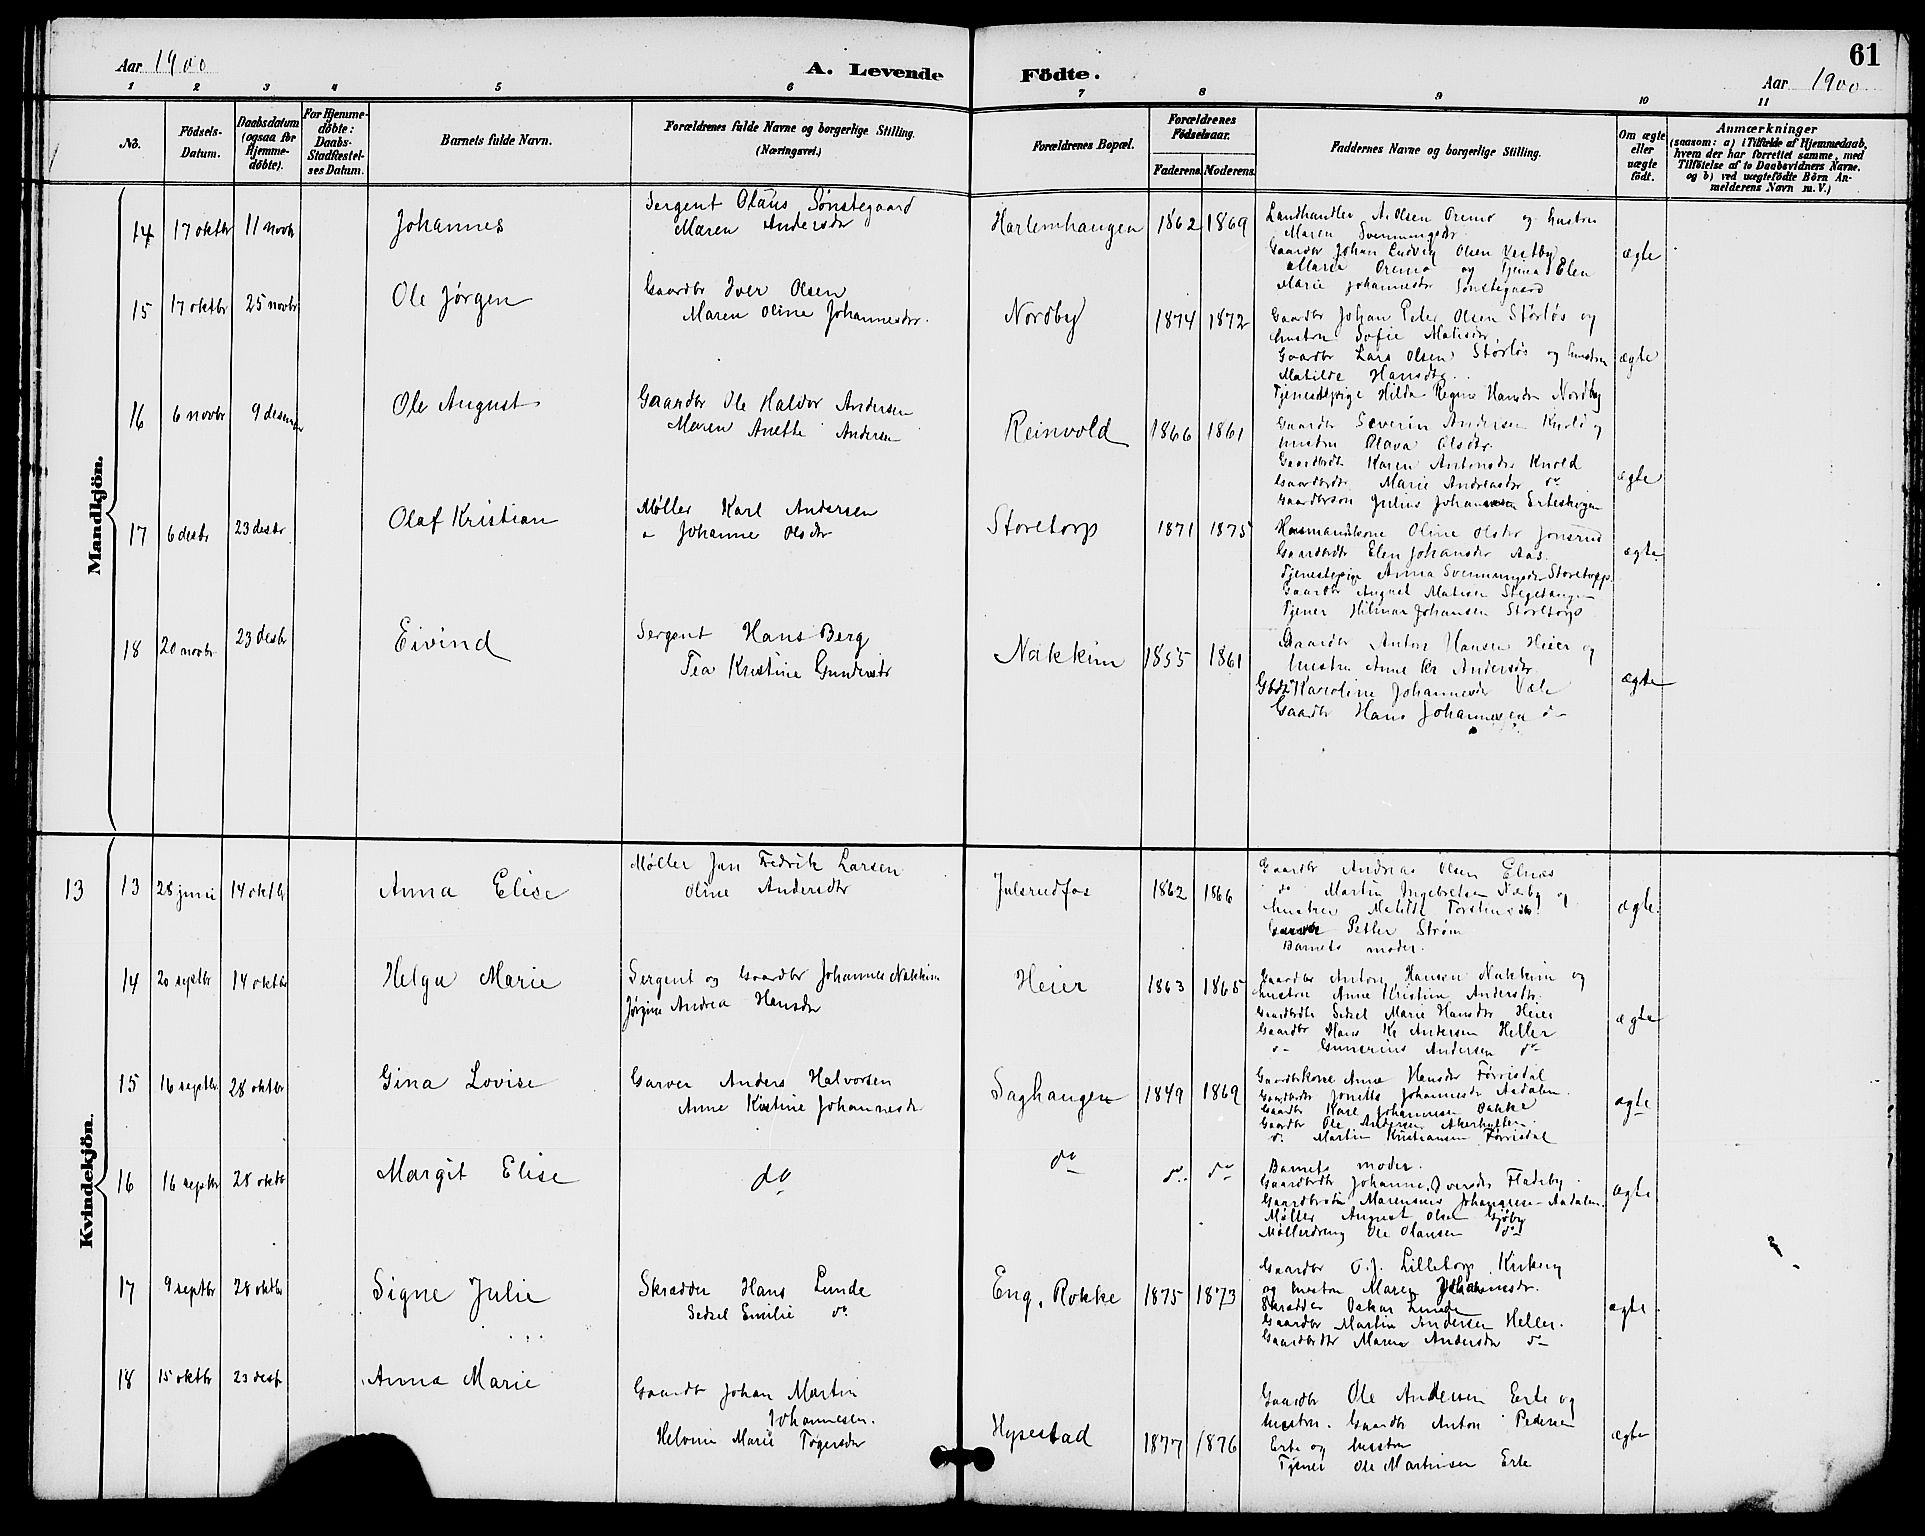 61
Aar 1900
A. Levende Födte.
Aar 1900
1 2 3 4 5 6 7 8 9 10 11
No.
Födsels-Datum.
Daabsdatum (ogsaa for Hjemme-döbte).
For Hjemme-döbte: Daabs-Stadfæstel-ses Datum.
Barnets fulde Navn.
Forældrenes fulde Navne og borgerlige Stilling. (Næringsvei.)
Forældrenes Bopæl.
Forældrenes Födselsaar.
Faderens. Moderens.
Faddernes Navne og borgerlige Stilling.
Om ægte eller uægte födt.
Anmærkninger
(saasom: a) i Tilfælde af Hjemmedaab, hvem der har forrettet samme, med Tilföielse af to Daabsvidners Navne. og b) ved uægtefödte Börn An-melderens Navn m. V.)
Mandkjön.
14 17 oktbr 11 novbr Johannes
Sergent Olaus Sønstegaard
Maren Andersdtr
Harlemhaugen 1862 1869
Landhandler A. Olsen Oremo og hustru
Maren Svenningsdtr
Gaardbr Johan Ludvig Olsen Vestby
Maria Oremo og Tjener Elen
Marie Johannesdtr Sønstegaard
ægte
15 17 oktbr 25 novbr Ole Jørgen
Gaardbr Iver Olsen
Maren Oline Johannesdtr.
Nordby 1874 1872
Gaardbr Johan Peter Olsen Störlös og
hustru Sofie Matisdtr
Gaardbr Lars Olsen Störlös og hustru
Matilde Hansdtr.
Tjenestepige Hilda Regine Hansdtr Nordby
ægte
16 6 novbr 9 desember Ole August
Gaardbr Ole Haldor Andersen
Maren Anette Andersen
Reinvold 1866 1861
Gaardbr Severin Andersen Knold og
hustru Olava Olsdtr
Gaardbrdtr Karen Antonsdtr Knold
Gaardbrdtr Marie Andreasdtr do
Gaardbrsøn Julius Johansen Erteskogen
ægte
17 6 desbr 23 desbr Olaf Kristian
Møller Karl Andersen
Johanne Olsdtr
Storetorp 1871 1875
Husmandskone Oline Olsdtr Jonsrud
Gaardbrdtr Elen Johansdtr Aas.
Tjenestepige Anna Svenningsdtr Storetorp
Gaardbr August Matisen Stegetangen
Tjener Hilmar Johansen Storetorp
ægte
18 20 novbr 23 desbr Eivind
Sergent Hans Berg
Tea Kristine Gundersdtr
Nakkim 1855 1861
Gaardbr Anton Hansen Heier og
hustru Anne Kr Andersdtr
Gbdtr Karoline Johannesdtr Væle
Gaardbr Hans Johannesen do
ægte
Kvindekjön.
13 13 28 juni 14 oktbr Anna Elise
Møller Jan Fredrik Larsen
Oline Andersdtr
Julsrudfos 1862 1866
Gaardbr Andreas Olsen Elnæs
do Martin Ingebretsen Næsby og
hustru Matilde Torstensdtr.
Gaardbr Petter Strøm
Barnets moder.
ægte.
14 20 septbr 14 oktbr Helga Marie
Sergent og Gaardbr Johannes Nakkim
Jørgine Andrea Hansdtr
Heier 1863 1865
Gaardbr Anton Hansen Nakkim og
hustru Anne Kristine Andersdtr.
Gaardbrdtr Sedsel Marie Hansdtr Heier
Gaardbr Hans Kr Andersen Heller
do Gunerius Andersen do
ægte
15 16 septbr 28 oktbr Gina Lovise
Garver Anders Halvorsen
Anne Kristine Johannesdtr
Saghaugen 1849 1869
Gaardbrkone Anne Hansdtr Förrisdal
Gaardbrdtr Jonetta Johannesdtr Aadalen.
Gaardbr Karl Johannesen Bakke
Gaardbr Ole Andersen Akerhytten
do Martin Kristiansen Förrisdal
ægte
16 16 septbr 28 oktbr Margit Elise
do
do
do do
Barnets moder.
Gaardbrdtr Johanne Iversdtr Fladeby
Gaardbrdtr Marensine Johannesen Aadalen.
Møller August Olsen Gjöby
Møllerdreng Ole Olausen do
ægte
17 9 septbr 28 oktbr Signe Julie
Skrædder Hans Lunde
Sedsel Emilie do
Eng, Rokke 1875 1873
Gaardbr O. J. Lilletorp Kirkeng
og hustru Maren Johannesdtr.
Skrædder Oskar Lunde
Gaardbr Martin Andersen Heller.
Gaardbrdtr Maren Andersdtr do
ægte
18 15 oktbr 23 desbr Anna Marie
Gaardbr Johan Martin
Johannesen.
Helvine Marie Tøgersdtr
Hysestad 1877 1876
Gaardbr Ole Andersen Erte og
hustru. Gaardbr Anton Pedersen
Erte og hustru
Tjener Ole Martinsen Erte
ægte